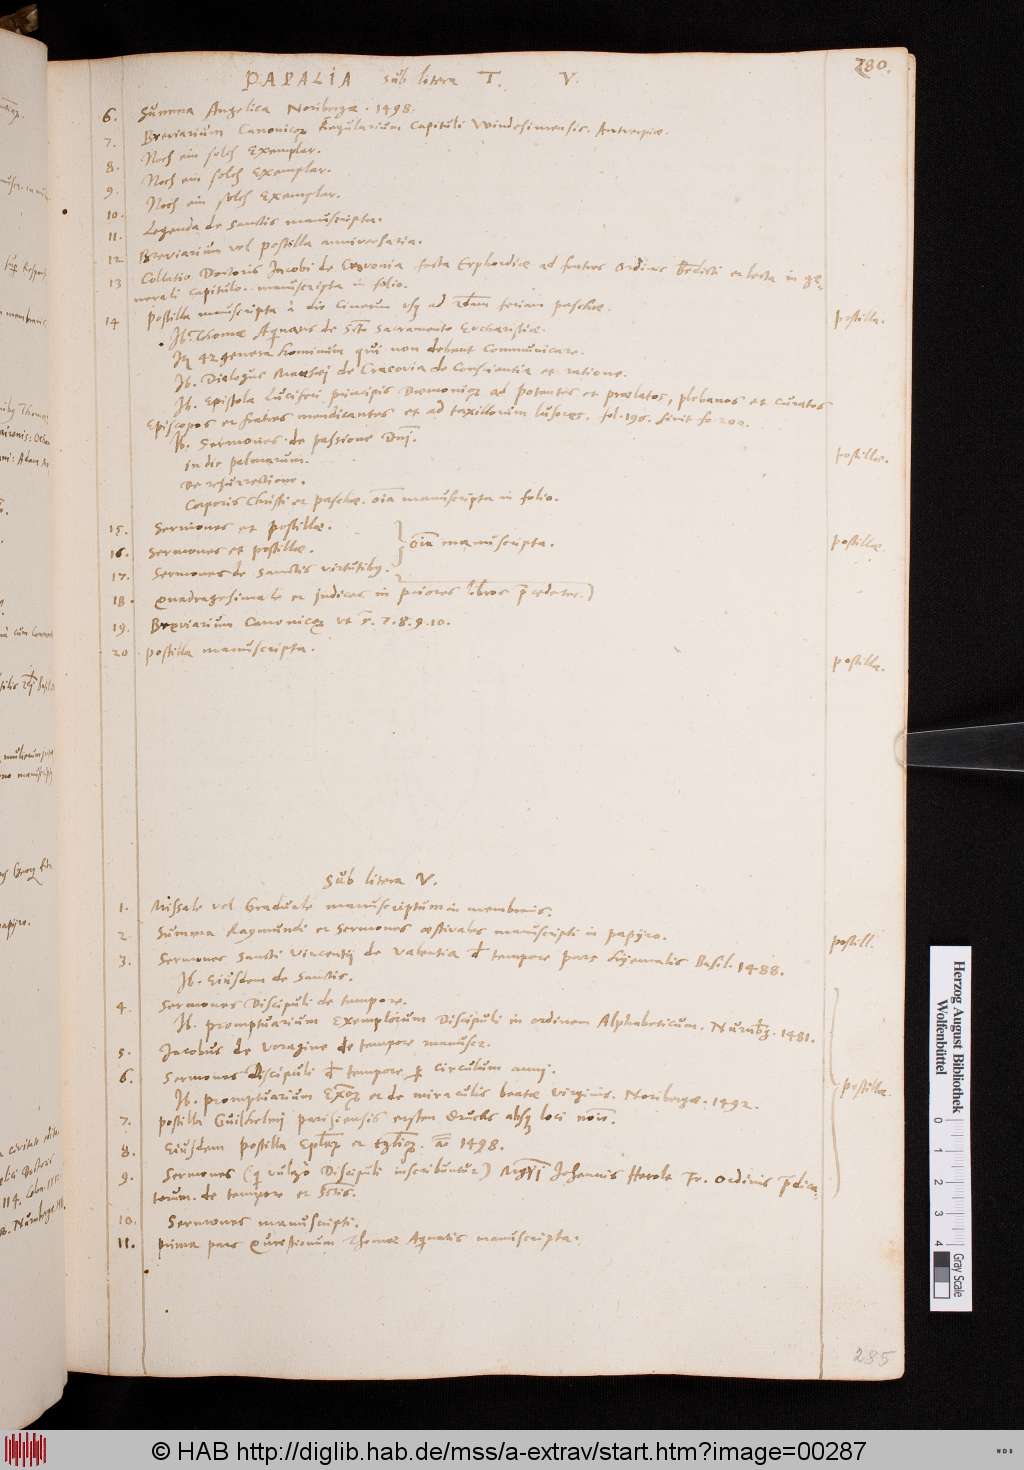 PAPALIA sub litera T. V.
280.
6. Summa Angelica Noribergae. 1498.
7. Breviarium Canonicorꝫ Regularium Capituli Windesimensis. Antverpiae.
8. Noch ein solch Exemplar.
9. Noch ein solch Exemplar.
10. Noch ein solch Exemplar.
11. Legenda de Sanctis manuscripta.
12. Breviarium vel postilla anniversaria.
13 Collatio Doctoris Jacobi de Cracovia facta Erphordiae ad fratres Ordinis Bndicti et lecta in ge-
nerali Capitulo. manuscripta in folio.
14 Postilla manuscripta à die Cinerum usq ad feriam paschae.
postilla.
Jb. Thomae Aquinatis de Scto Sacramento Eucharistiae.
It 42 genera hominum qui non debent communicare.
Jb. Dialogus Mathaei de Cracovia de Conscientia et ratione.
Jb. Epistola Luciferi principis Daemonioꝫ ad potentes et praelatos, plebanos et curatos
Episcopos et fratres mendicantes et ad taxillorum lusores. fol. 196. finit fo. 200.
Jb. Sermones de passione Dnj.
postillae.
in die palmarum.
De resurrectione.
Corporis Christi et paschae. oia manuscripta in folio.
15. Sermones et postillae.
16. Sermones et postillae.
oia manuscripta.
postillae
17. Sermones de Sanctis virtutibꝫ.
18. Quadragesimale et Indices in priores libros pcedentes.
19. Breviarium Canonicoꝫ ut s. 7. 8. 9. 10.
20 postilla manuscripta.
postilla.
Sub litera V.
1. Missale vel Graduale manuscriptum in membranis.
2. Summa Raymundi et Sermones aestivales manuscripti in papyro.
postill.
3. Sermones Sancti Vincentij de Valentia d tempore pars hyemalis Basil. 1488.
Jb. Eiusdem de Sanctis.
4. Sermones Discipuli de tempore.
Jb. promptuarium Exemplorum Discipuli in ordinem Alphabeticum. Nurnbg. 1481.
5. Jacobus de Voragine de tempore manuscr.
6. Sermones Discipuli d tempore p circulum anni.
postillae.
Jb. promptuarium Exoꝫ et de miraculis beatae virginis. Noribergae. 1492.
7. postilla Guilhelmj parisiensis ersten Drucks absqꝫ loci noie.
8. Eiusdem postilla Eplaꝫ et Eglioꝫ. ao 1498.
9. Sermones (q vulgò Discipuli inscribuntur) Mgrj Johannis Herolt Fr. Ordinis pdica-
torum. de tempore et Sctis.
10. Sermones manuscripti.
11. prima pars Quaestionum Thomae Aquinatis manuscripta.
285
Herzog August Bibliothek
Wolfenbüttel
0 1 2 3 4
Gray Scale
© HAB http://diglib.hab.de/mss/a-extrav/start.htm?image=00287